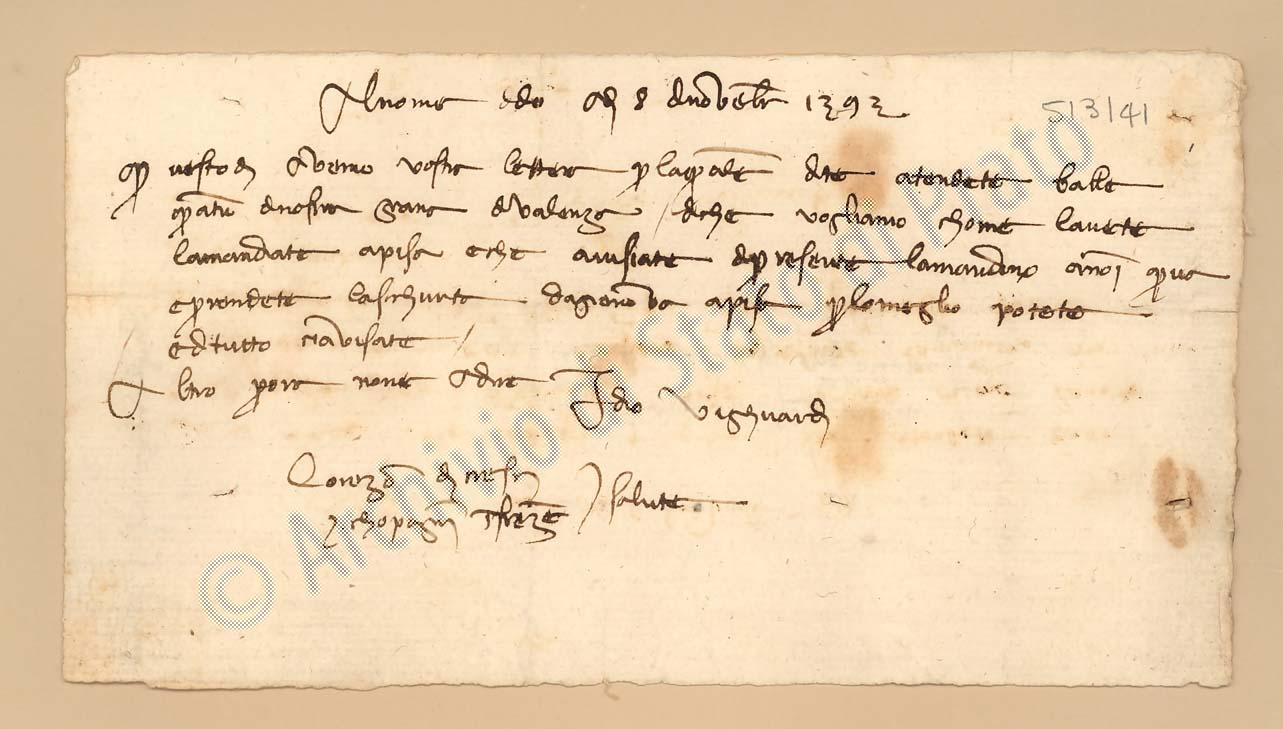 Al nome di dio Adi 8 di novenbre 1393
513/41
Questo di avemo vostra lettera p(er) la quale dite atendete balle
quatro di nostra grana di valenza / di che vogliamo chome l'avete
la mandiate a pisa e che avisiate da pisa
e prendete la sichurta da gienova a pisa p(er) lo meglio potete
e di tutto ci avisate /
Altro p(er) ora non c'è a dire Idio vi ghuardi
Lorenzo di
e chopagni Firenze salute
© Archivio di Stato di Prato